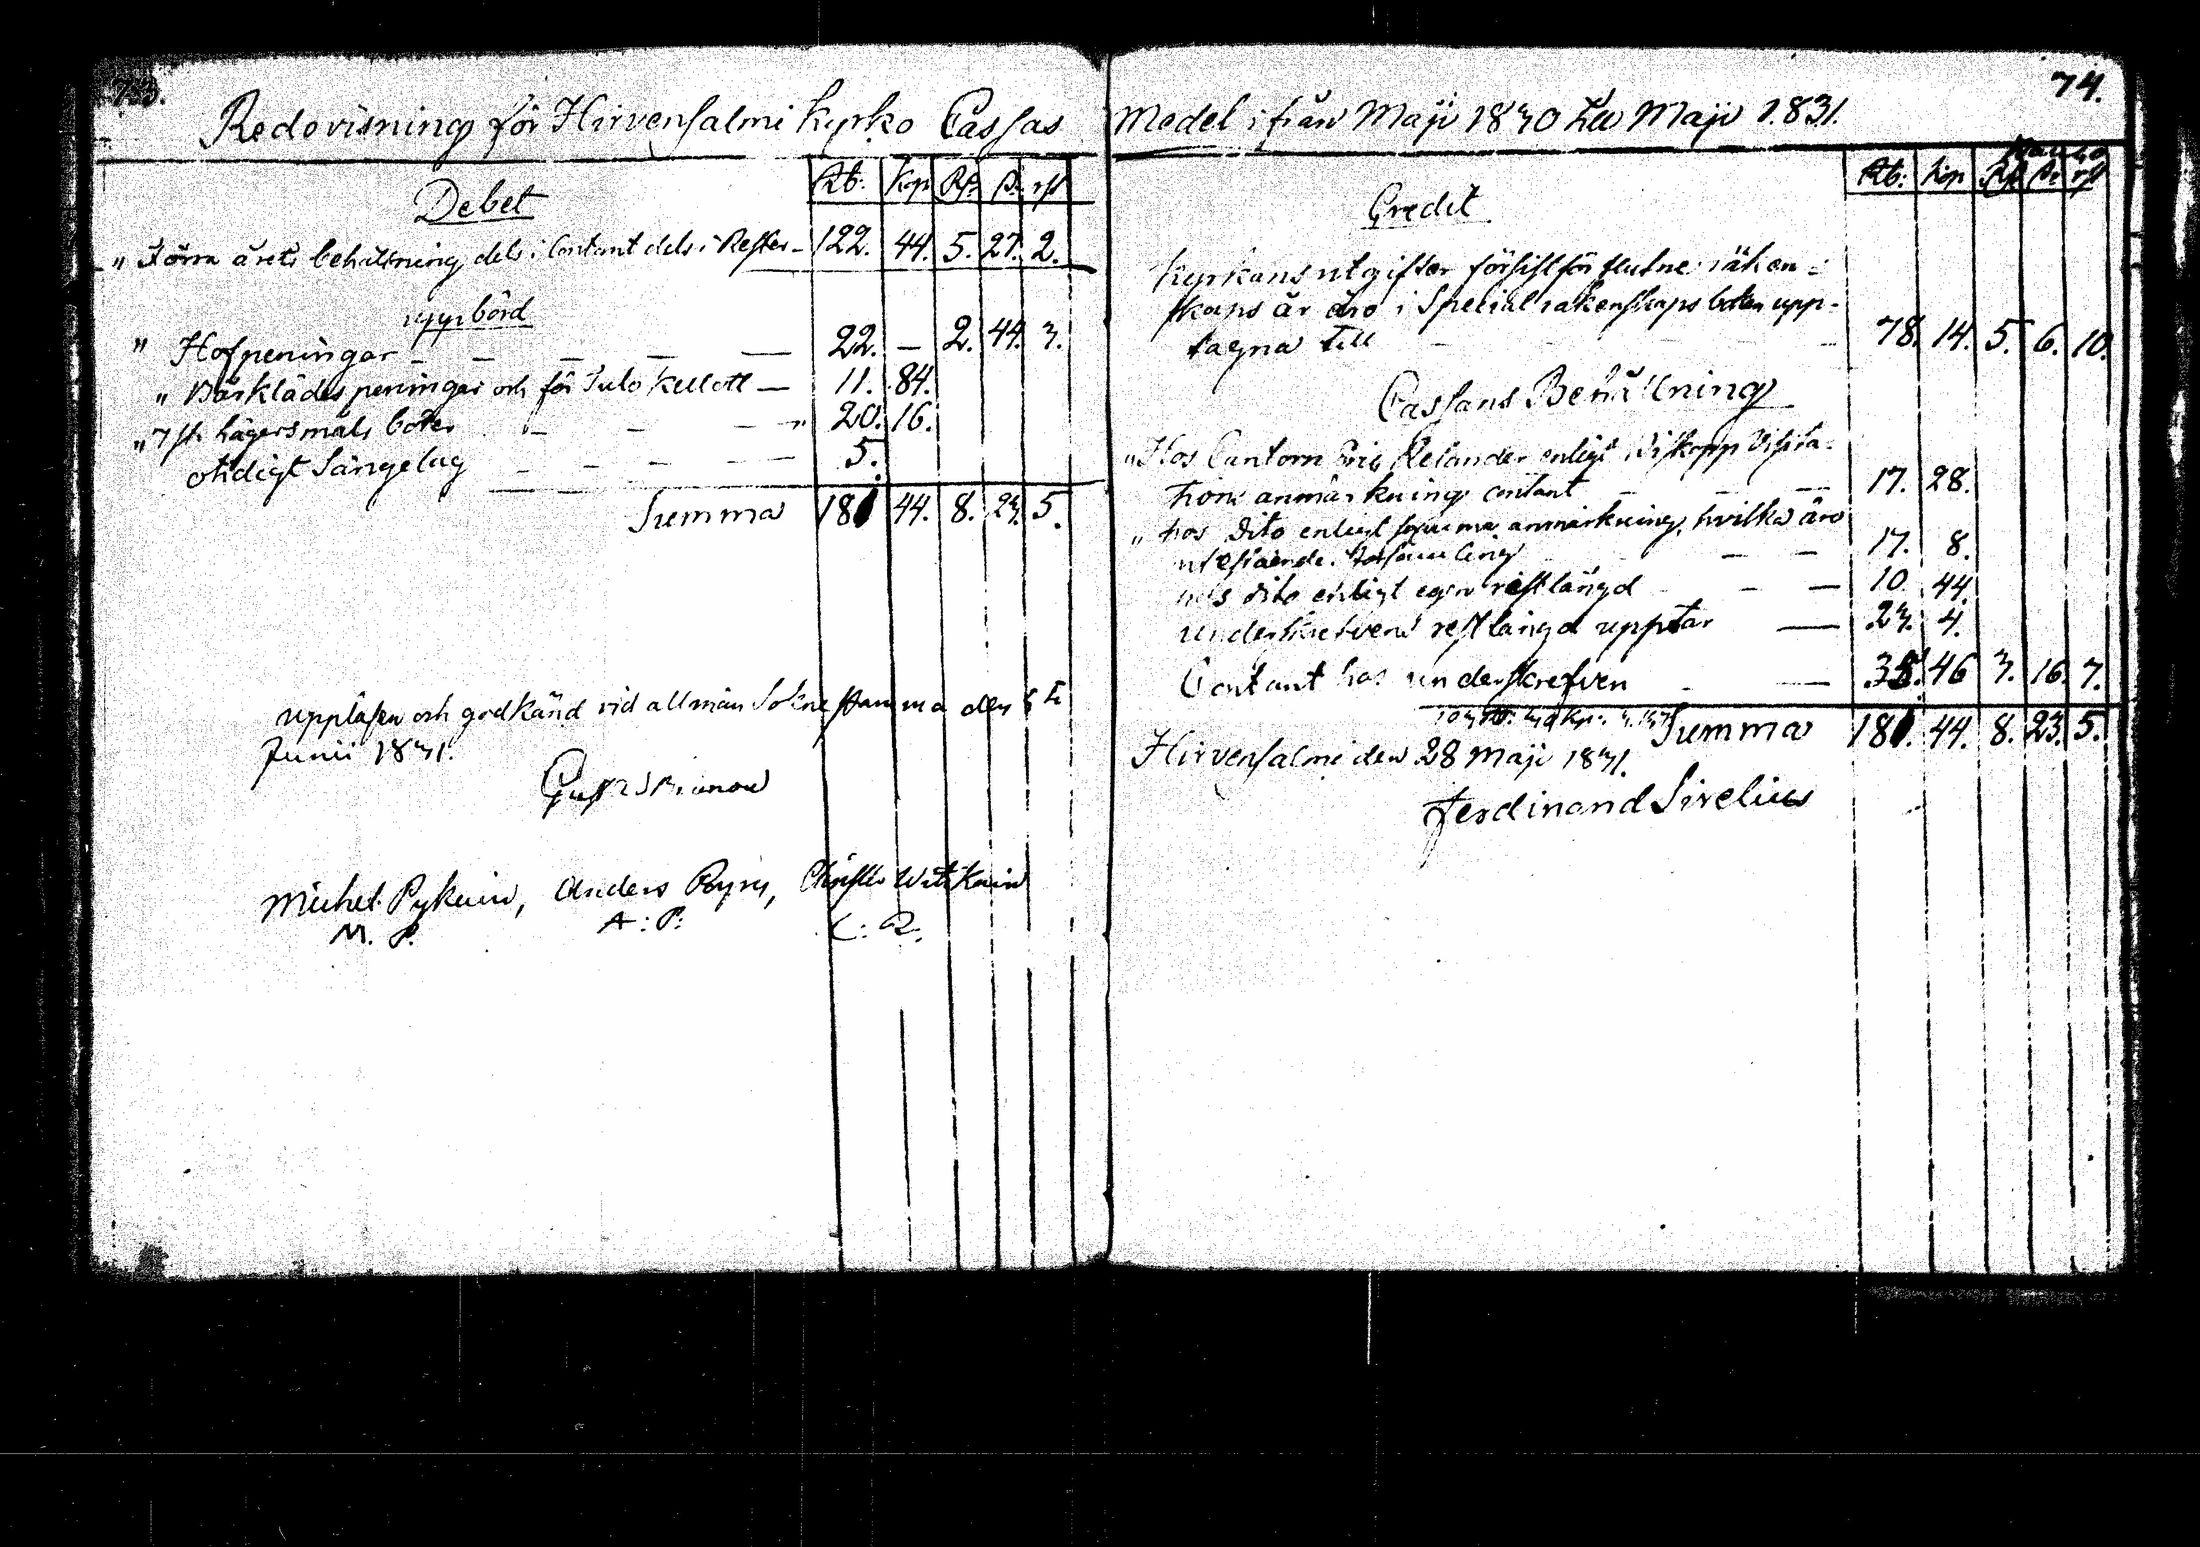 73.
Redovisning för Hirvensalmi Kyrko Cassas
Debet
Rb: Kop Rd: s. rst
" Förra årets behållning dels i Contant dels i Rester - 122. 44. 5. 27. 2.
uppbörd
" Hofpeningar — 22. — 2. 44. 3.
" Bårklädes peningar och för Sielo — 11. 84.
" 7 st. lägersmåls böter — 20. 16.
otidigt Sängelag — 5.
Summa 181 44. 8. 23. 5.
uppläsen och godkänd vid allmän Sokne stamma den 5 te
Junii 1831.
Michel Pykäin, Anders Pyry, Christer
M. P. A: P: C: R:
74.
Medel ifrån Maji 1830 till Maji 1831.
Banco
Rb: Kop Rd s. rst
Credit
Kyrkans utgifter för sistförflutne räken-
skaps år äro i Special räkenskaps boken upp-
tagna till — 78. 14. 5. 6. 10.
Cassans Behållning
" Hos Cantorn Eric Relander enligt Biskopp Visita-
tions anmärkning contant — 17. 28.
" hos Dito enligt samma anmärkning, hvilka äro
utestående — 17. 8.
hos Dito enligt egen restlängd — 10 44.
underskrefvens restlängd upptar — 23. 4.
Contant hos underskrefven — 35. 46 3. 16. 7.
Summa 181. 44. 8. 23. 5.
Hirvensalmi den 28 Maji 1831.
Ferdinand Sirelius